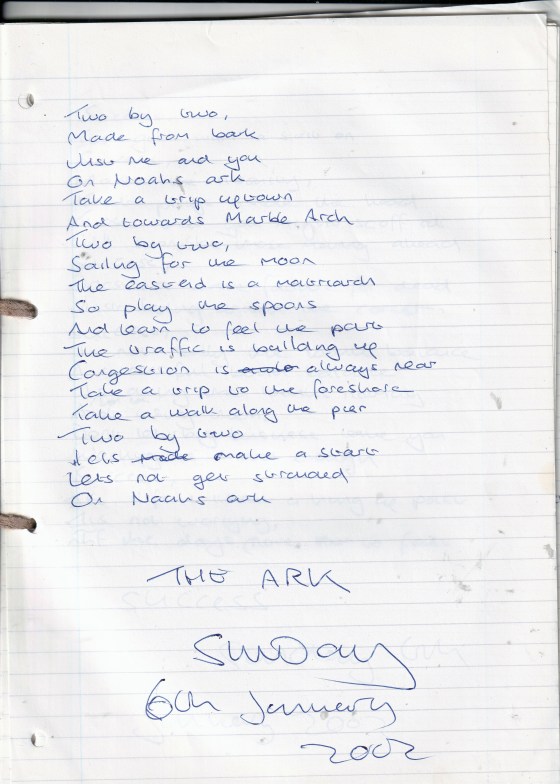 Two by two,
Made from bark
Just me and you
On Noahs ark
Take a trip uptown
And towards Marble Arch
Two by two,
Sailing for the moon
The eastend is a matriarch
So play the spoons
And learn to feel the part
The traffic is building up
Congestion is always near
Take a trip to the foreshore
Take a walk along the pier
Two by two
Lets make a start
Lets not get stranded
On Noahs ark
THE ARK
SunDay
6th January
2002